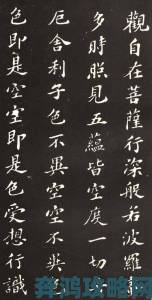 觀自在菩薩行深般若波羅
多時照見五蘊皆空度一切
厄舍利子色不異空空不異
色即是空空即是色受想行識